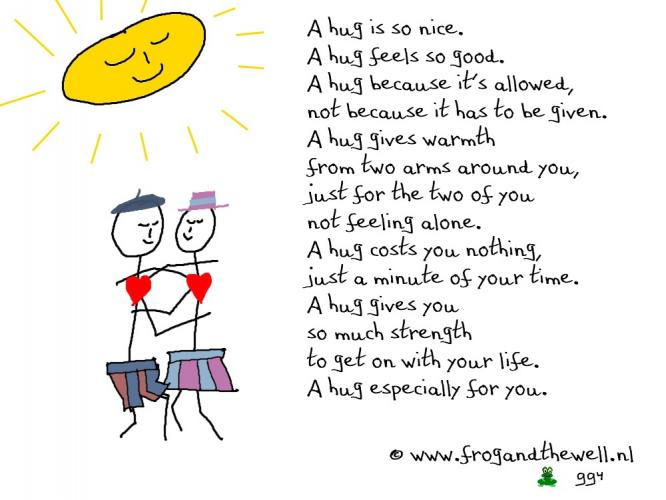 A hug is so nice.
A hug feels so good.
A hug because it's allowed,
not because it has to be given.
A hug gives warmth
from two arms around you,
just for the two of you
not feeling alone.
A hug costs you nothing,
just a minute of your time.
A hug gives you
so much strength
to get on with your life.
A hug especially for you.
© www.frogandthewell.nl
994